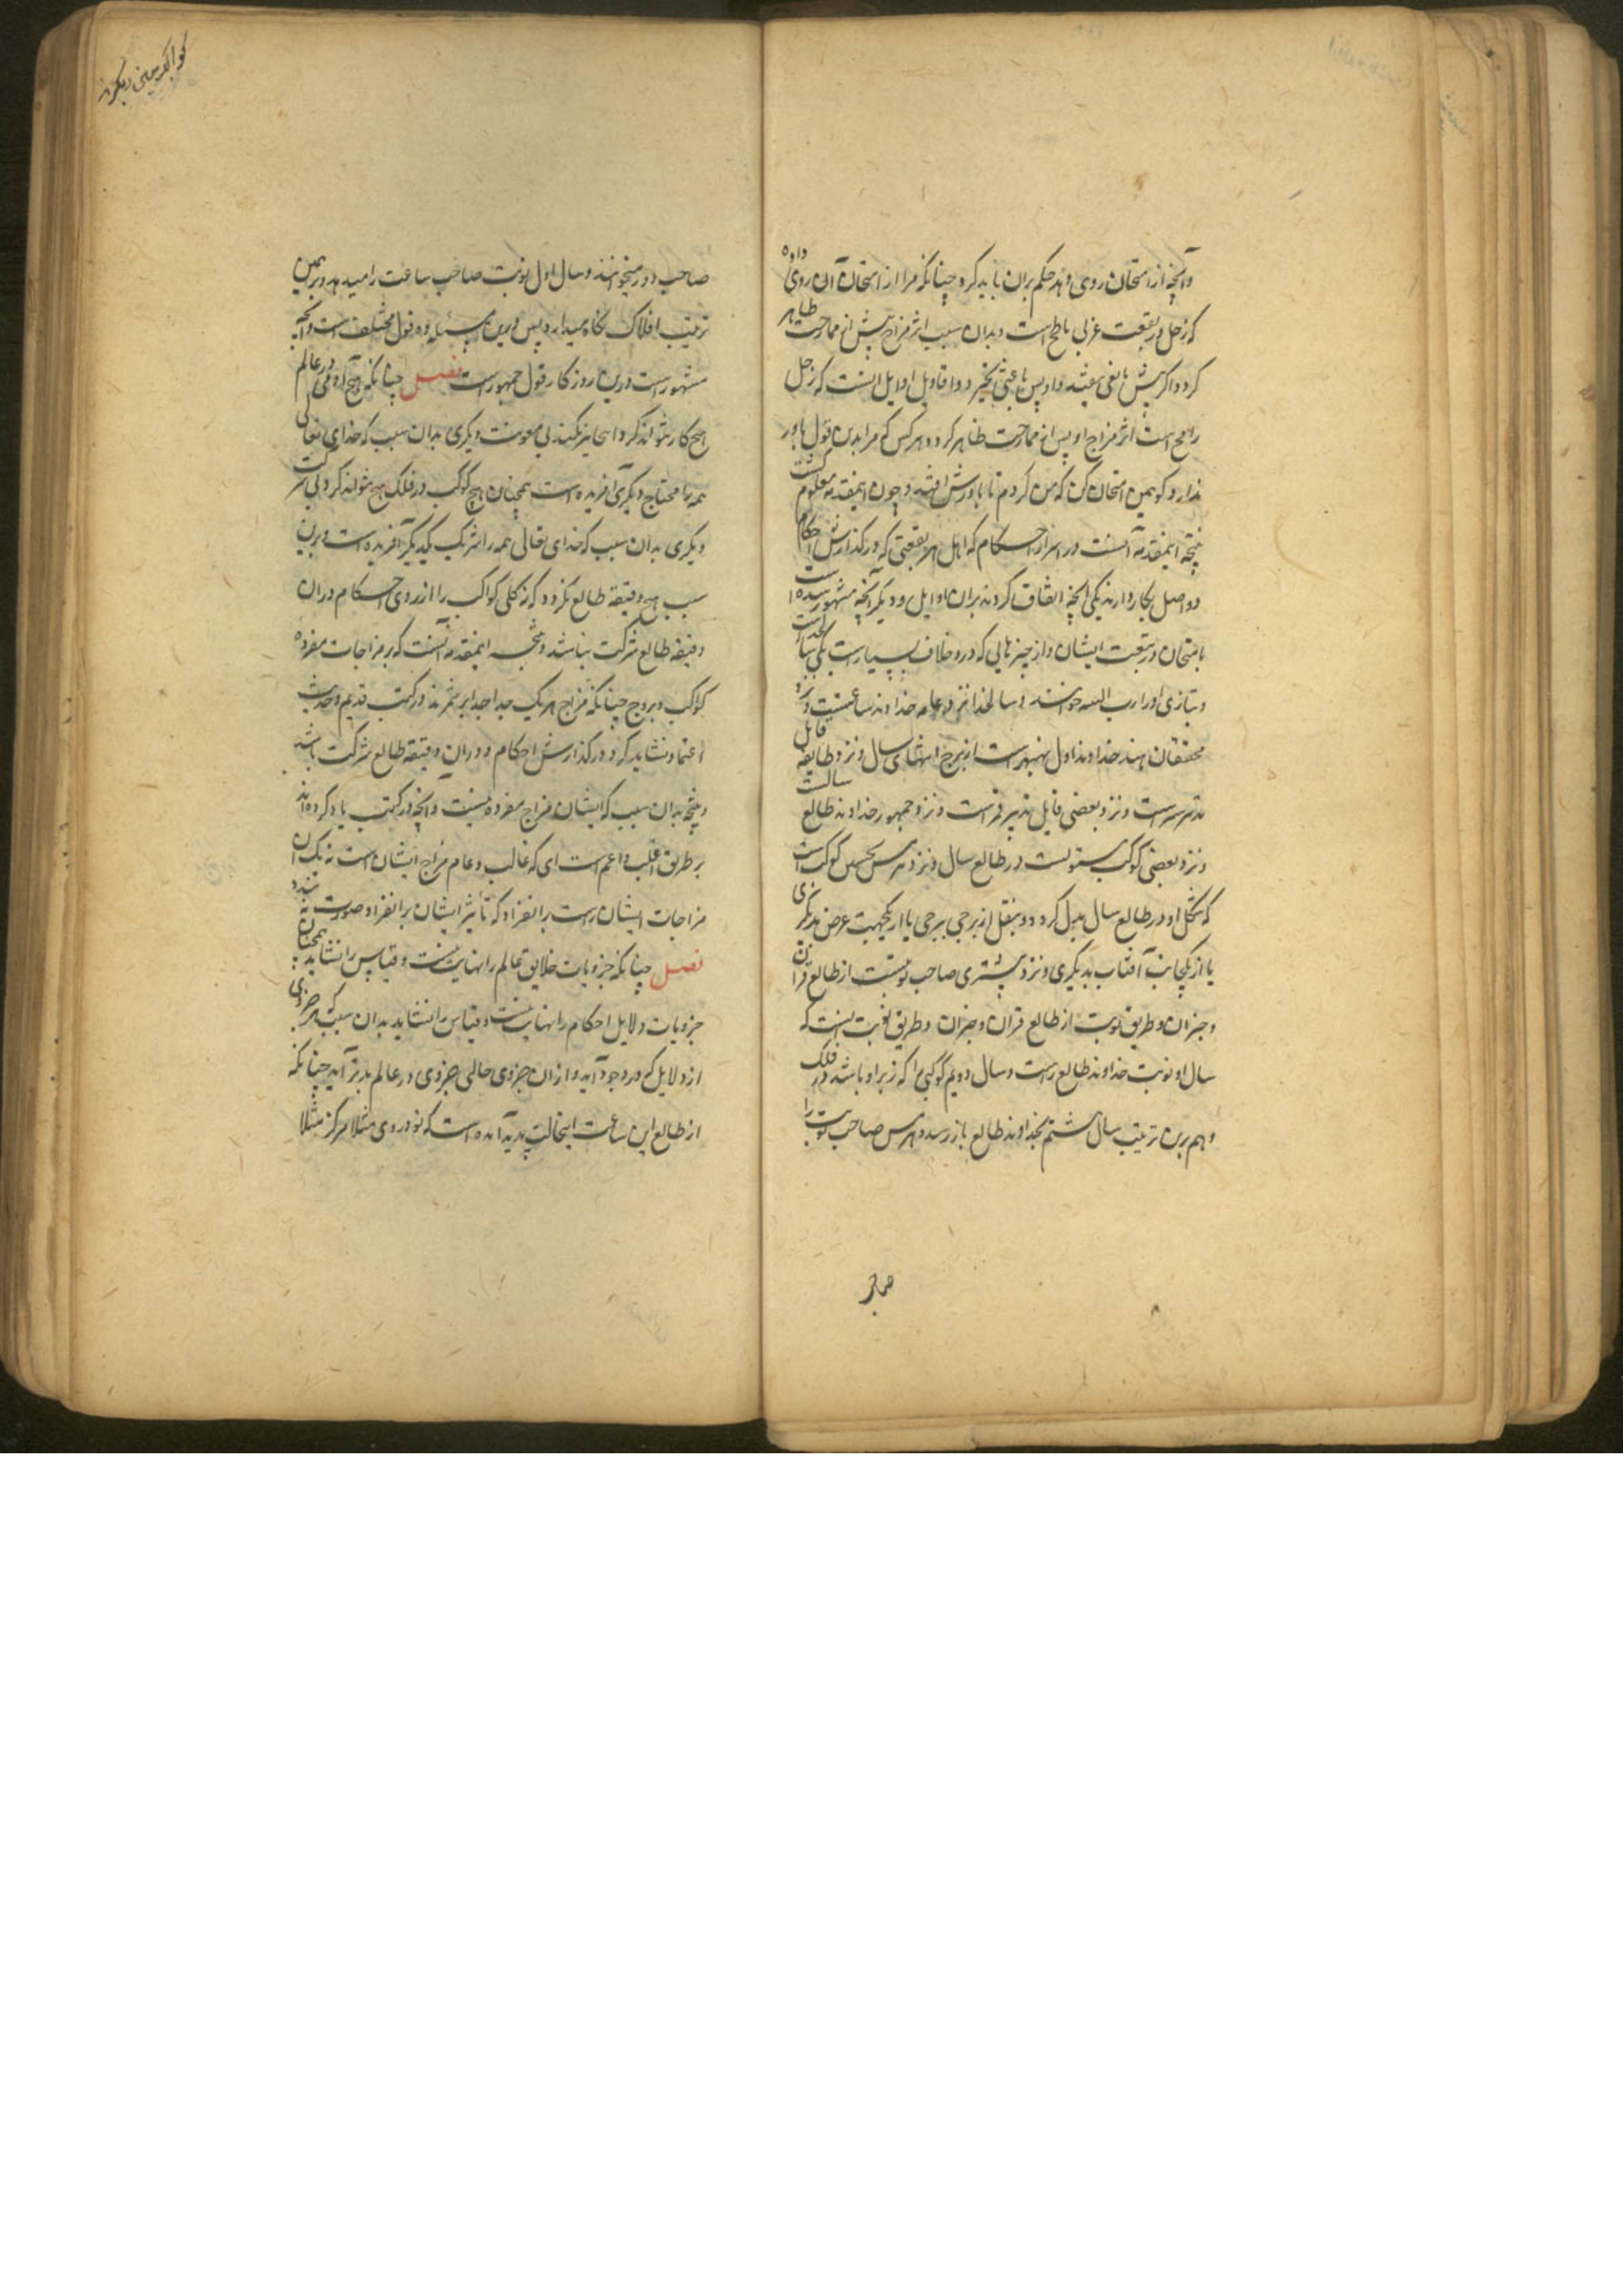 وآنچه از امتحان روی دهد حکم بران باید کرد چنانکه مرا از امتحان آن روی داده
که زحل در بقعت غربی است و بدان سبب اثر مزاج پیش از ممازجت ظاهر
کردد اکر پیش واقاویل اوایل اینست که زحل
رامح است اثر مزاج او پس از ممازجت ظاهر کردد و هر کس که مرا بدین قول باور
ندارد کو همین امتحان کن که من کردم تا باورش افتد و چون اینمقدمه معلوم کشت
نتیجه اینمقدمه آنست در اسرار احکام که اهل هر بقعتی که در کذارش احکام
دو اصل بکار دارند یکی آنچه اتفاق کردند بران اوایل و دیکر آنچه مشهور شده است
بامتحان در بقعت ایشان و از چیزهایی که درو خلاف بسیار است یکی سالخداست
و بتازی او را رب السنه خوانند و سالخدا نزد عامه خداوند ساعتست و نزد
محققان هند خداوند اول نهبهر است از برج انتهای سال و نزد طایفه قابل
تدبیر است و نزد بعضی قابل تدبیر قمر است و نزد جمهور خداوند طالع سالست
و نزد بعضی کوکب مستولیست در طالع سال و نزد هرمس کوکب است
که شکل او در طالع سال بدل کردد و بنقل از برجی ببرجی یا از یکجهت عرض بدیکری
یا از یکجانب آفتاب بدیکری و نزد مشتری صاحب نوبتست از طالع قران
و طریق نوبت از طالع قران و طریق نوبت اینست که
سال او نوبت خداوند طالع راست و سال دویم کوکبی را که زبر او باشد در فلک
و هم برین ترتیب سال هشتم بخداوند طالع باز رسد و هرمس صاحب نوبت را
صاحب
کواکب یعنی دیکر
صاحب دور میخوانند و سال اول نوبت صاحب ساعت را میدهد و برهمین
ترتیب افلاک نکاه میدارد پس درین مسئله ده قول مختلف است و آنچه
مشهور است درین روزکار قول جمهور است فصل چنانکه هیچ آدمی در عالم
هیچ کار نتواند کرد بی معونت دیکری بدان سبب که خدای تعالی
همه را محتاج دیکری آفریده است همچنان هیچ کوکب در فلک هیچ نتواند کرد بی شرکت
دیکری بدان سبب که خدای تعالی همه را شریک یکدیکر آفریده است و برین
سبب هیچ دقیقه طالع نکردد که نه کلی کواکب را از روی احکام دران
دقیقه طالع شرکت نباشد و نتیجه اینمقدمه آنست که بر مزاجات مفرده
کواکب و بروج چنانکه مزاج هر یک جدا جدا بر شمرند در کتب قدیم و حدیث
اعتماد نشاید کرد در کذارش احکام و دران دقیقه طالع شرکت باشد
و نتیجه بدان سبب که ایشان را مزاج مفرده نیست و آنچه در کتب یاد کرده‌اند
بر طریق اغلب و اعم است ای که غالب و عام مزاج ایشان است نه یک آن
مزاجات ایشان راست بر انفراد که تأثیر ایشان بر انفراد صورت نبندد
فصل چنانکه جزویات خلایق عالم را نهایت نیست و قیاس را نشاید همچنان
جزویات دلایل احکام را نهایت نیست و قیاس را نشاید بدان سبب که هر جزوی
از دلایل که در وجود آید از ان جزوی حالی جزوی در عالم پدید آید چنانکه
از طالع این ساعت اینحالت پدید آمده است که تو در وی مثلا مرکز مثلا